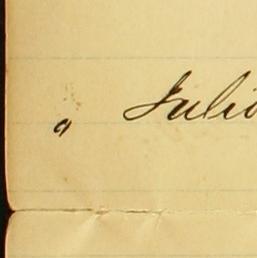 " Julio